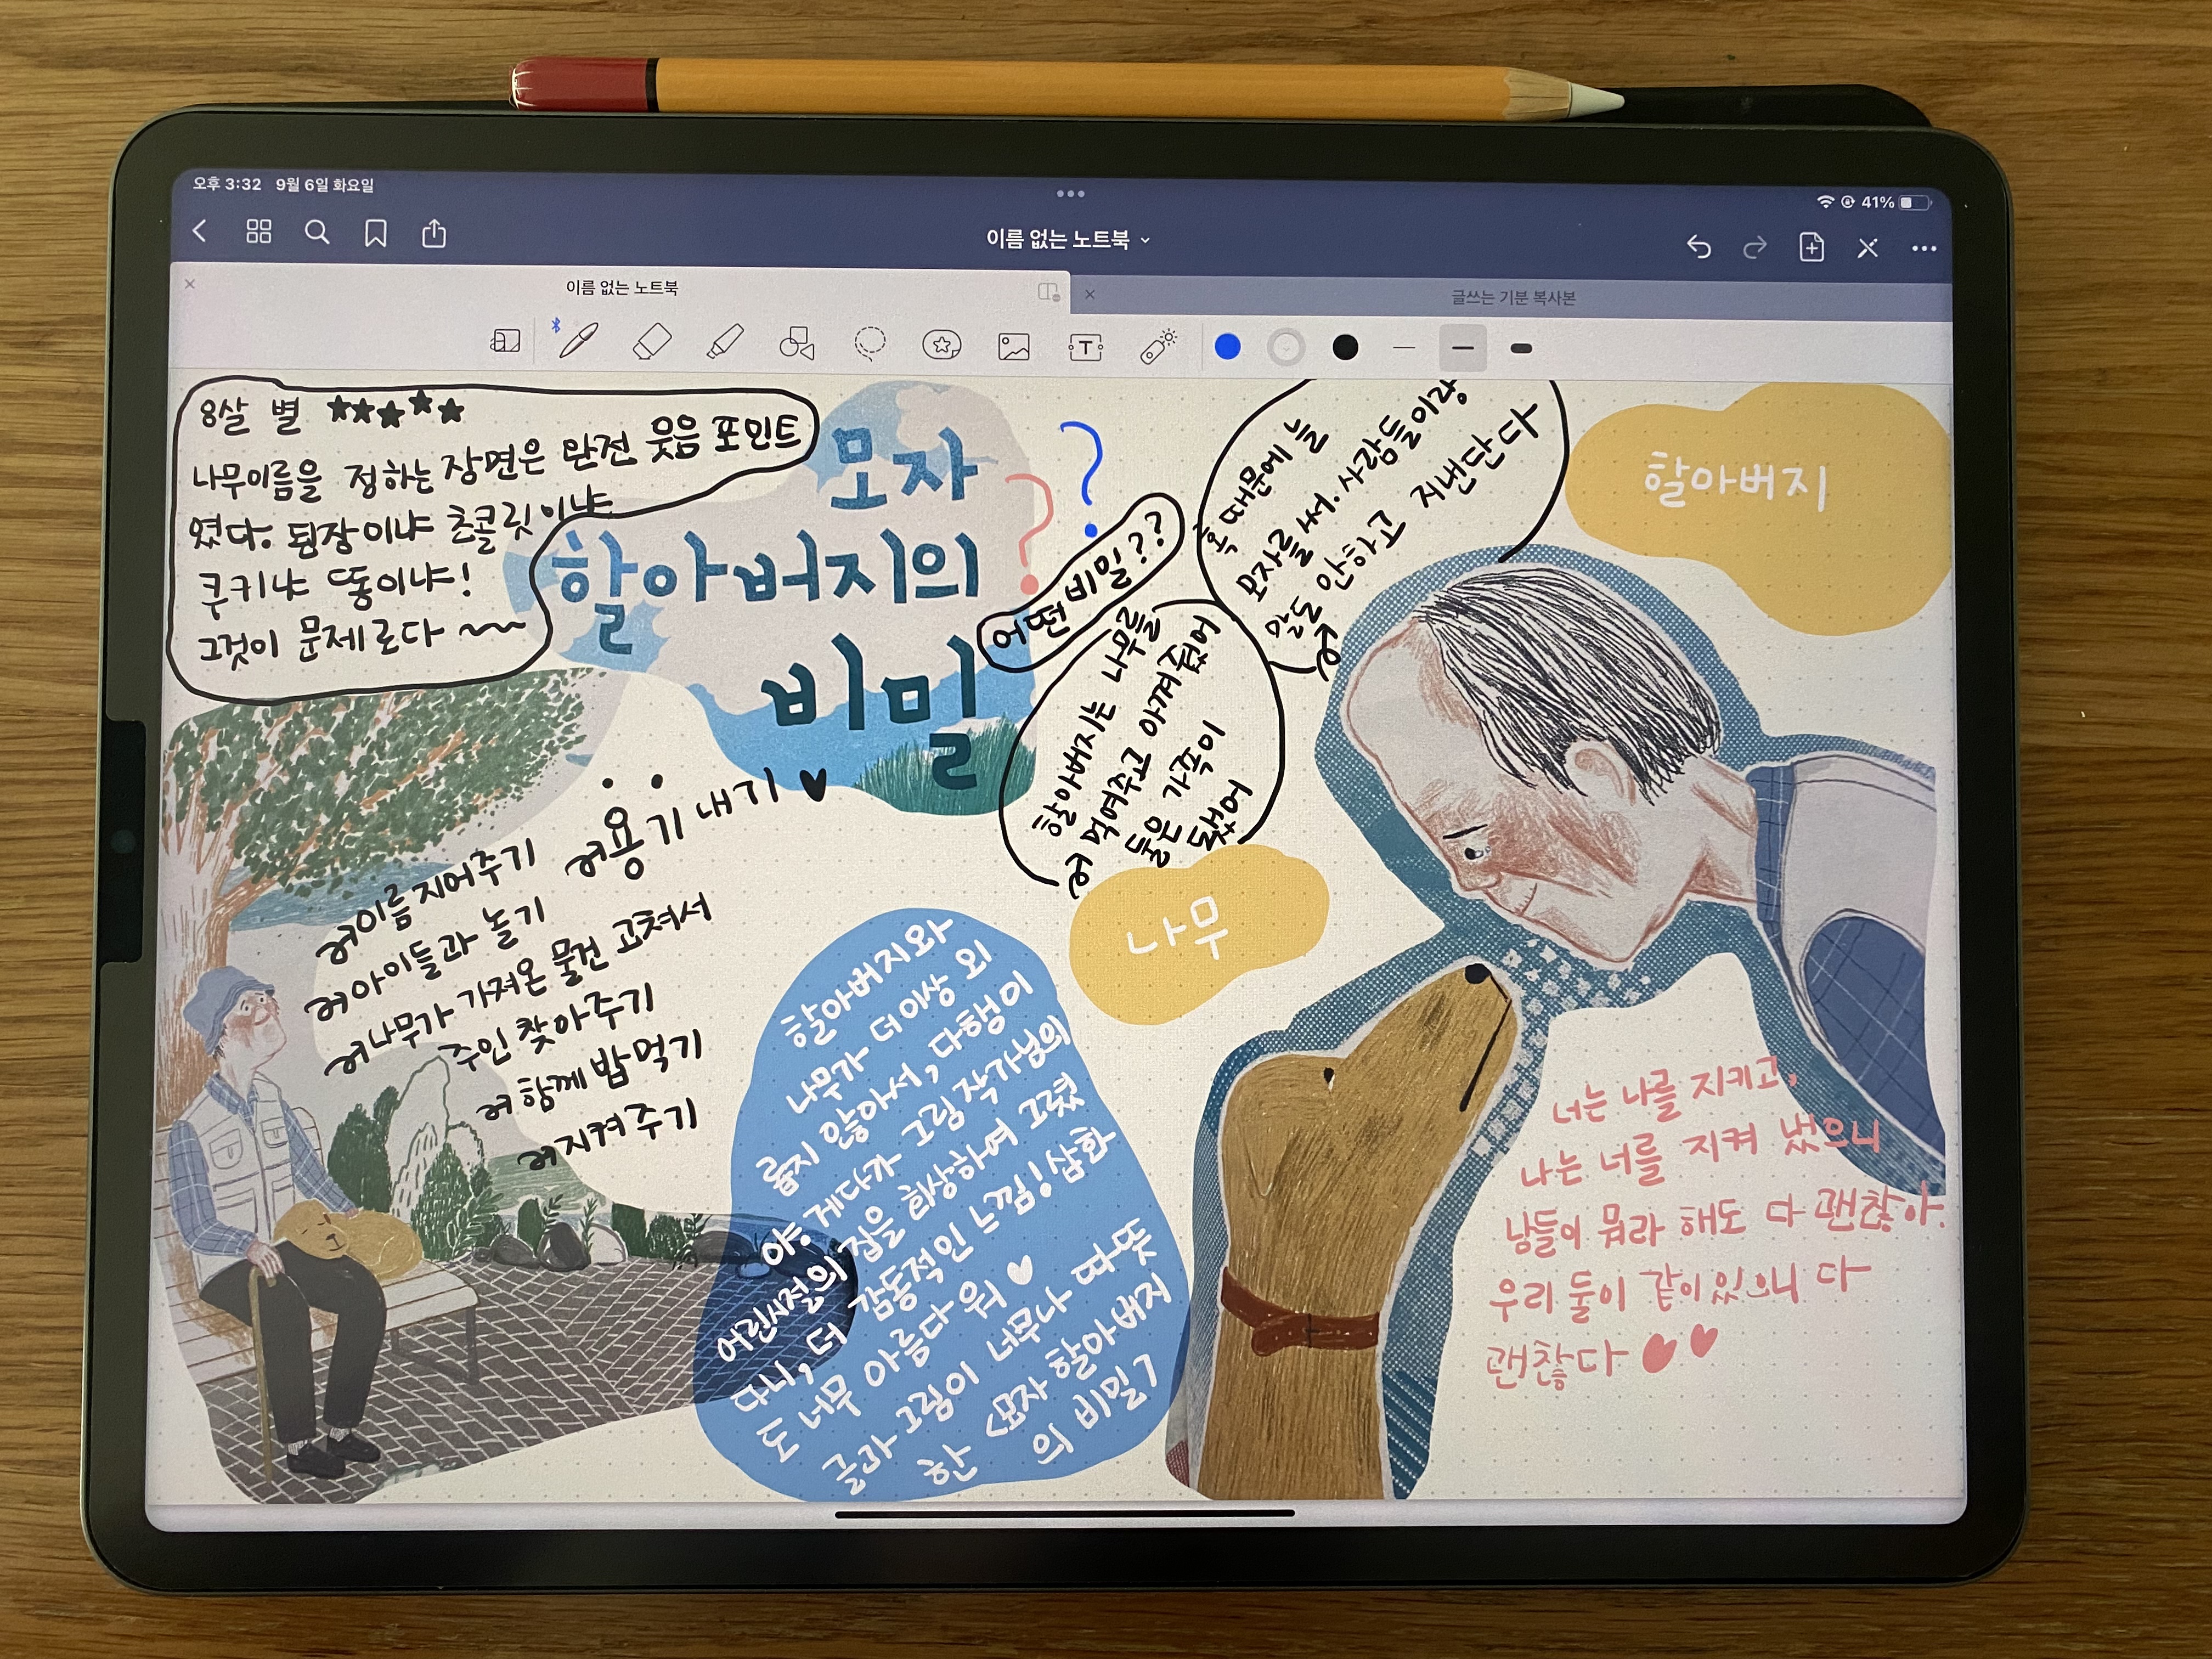 오후 3:32 9월 6일 화요일
41%
이름 없는 노트북
이름 없는 노트북
글쓰는 기분 복사본
T
8살 별 ★★★★★
나무이름을 정하는 장면은 완전 웃음 포인트
였다. 된장이냐 초콜릿이냐
쿠키냐 똥이냐!
그것이 문제로다 ~~
모자
할아버지의
비밀
? ?
어떤 비밀??
혹 때문에 늘
모자를 써. 사람들이랑
말도 안하고 지낸단다
할아버지
할아버지는 나무를
먹여주고 아껴줬어
둘은 가족이
됐어
나무
용기내기 ♥
이름 지어주기
아이들과 놀기
나무가 가져온 물건 고쳐서
주인 찾아주기
함께 밥먹기
지켜주기
할아버지와
나무가 더이상 외
롭지 않아서, 다행이
야. 게다가 그림 작가님의
어린시절의 집을 회상하여 그렸
다니, 더 감동적인 느낌! 삽화
도 너무 아름다워 ♥
글과 그림이 너무나 따뜻
한 <모자 할아버지
의 비밀>
너는 나를 지키고,
나는 너를 지켜 냈으니
남들이 뭐라 해도 다 괜찮아.
우리 둘이 같이 있으니 다
괜찮다 ♥♥